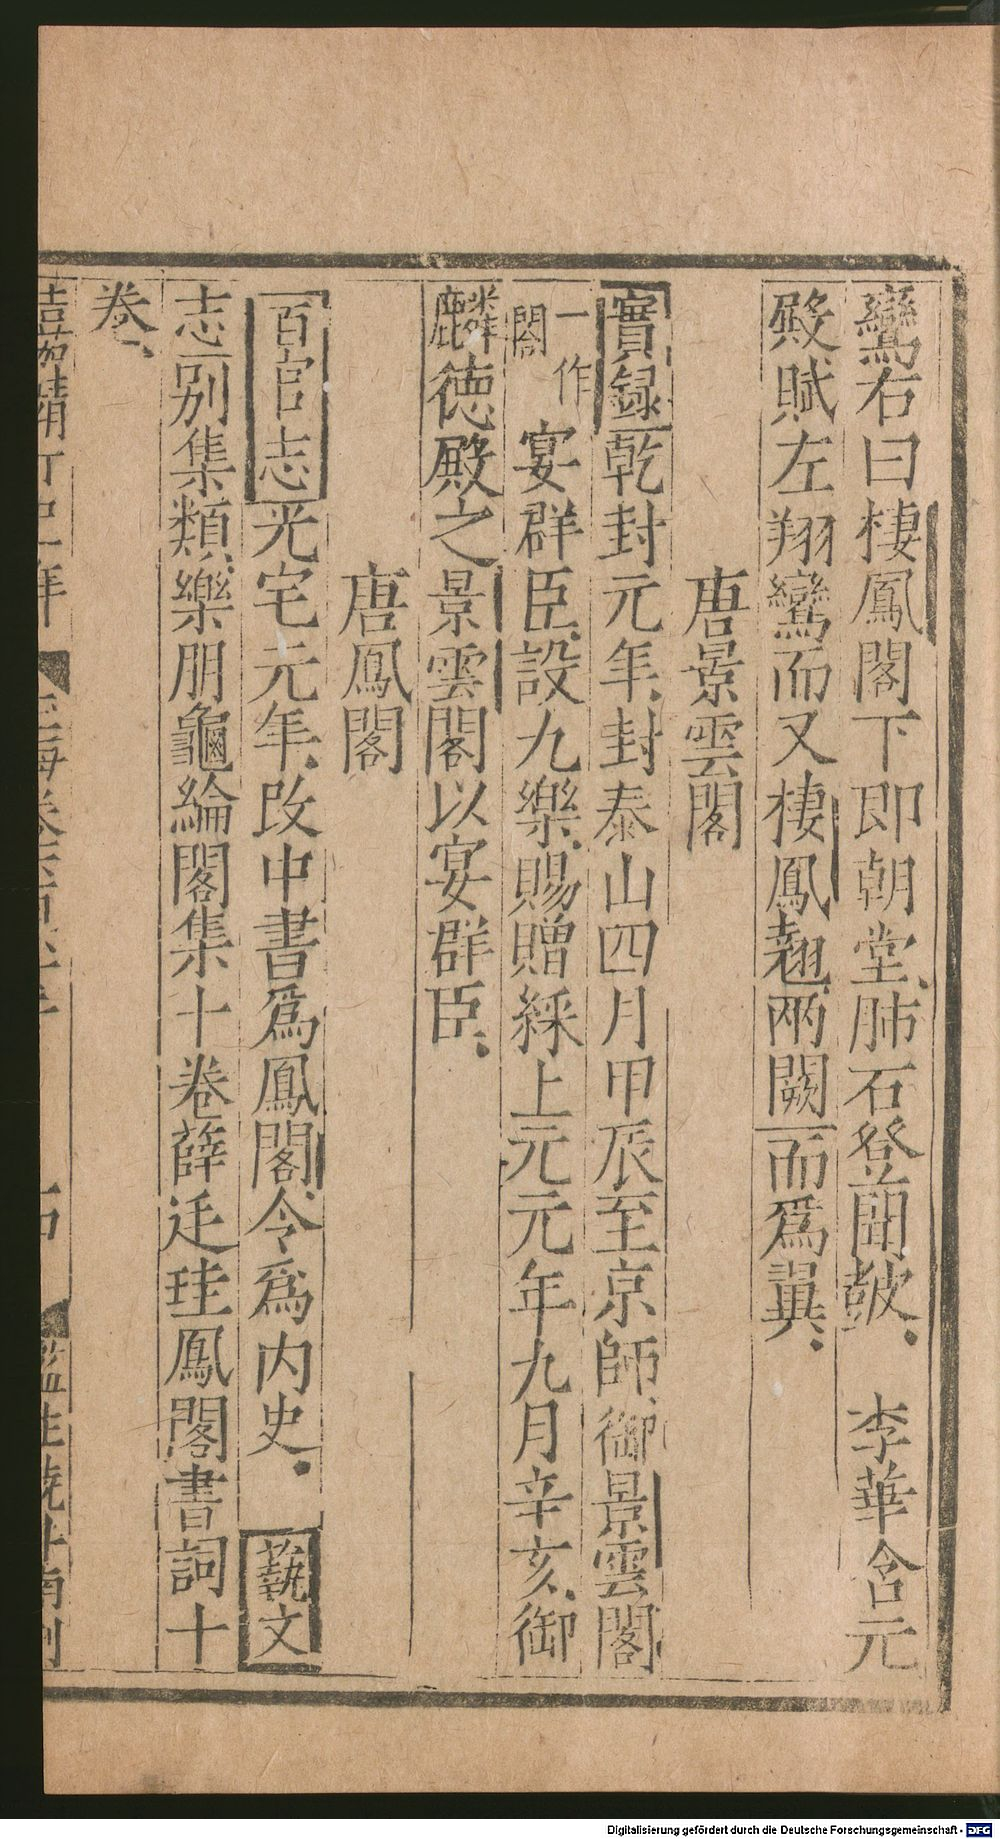 鸞右曰棲鳳閣下即朝堂肺石登聞鼓 李華含元
殿賦左翔鸞而又棲鳳翹兩闕而為翼
唐景雲閣
實録乾封元年封泰山四月甲辰至京師御景雲閣
一作閣宴群臣設九樂賜贈綵上元元年九月辛亥御
麟德殿之景雲閣以宴群臣
唐鳳閣
百官志光宅元年改中書爲鳳閣令爲内史 蓺文
志别集類樂朋龜綸閣集十卷薛廷珪鳳閣書詞十
卷
Digitalisierung gefördert durch die Deutsche Forschungsgemeinschaft - DFG